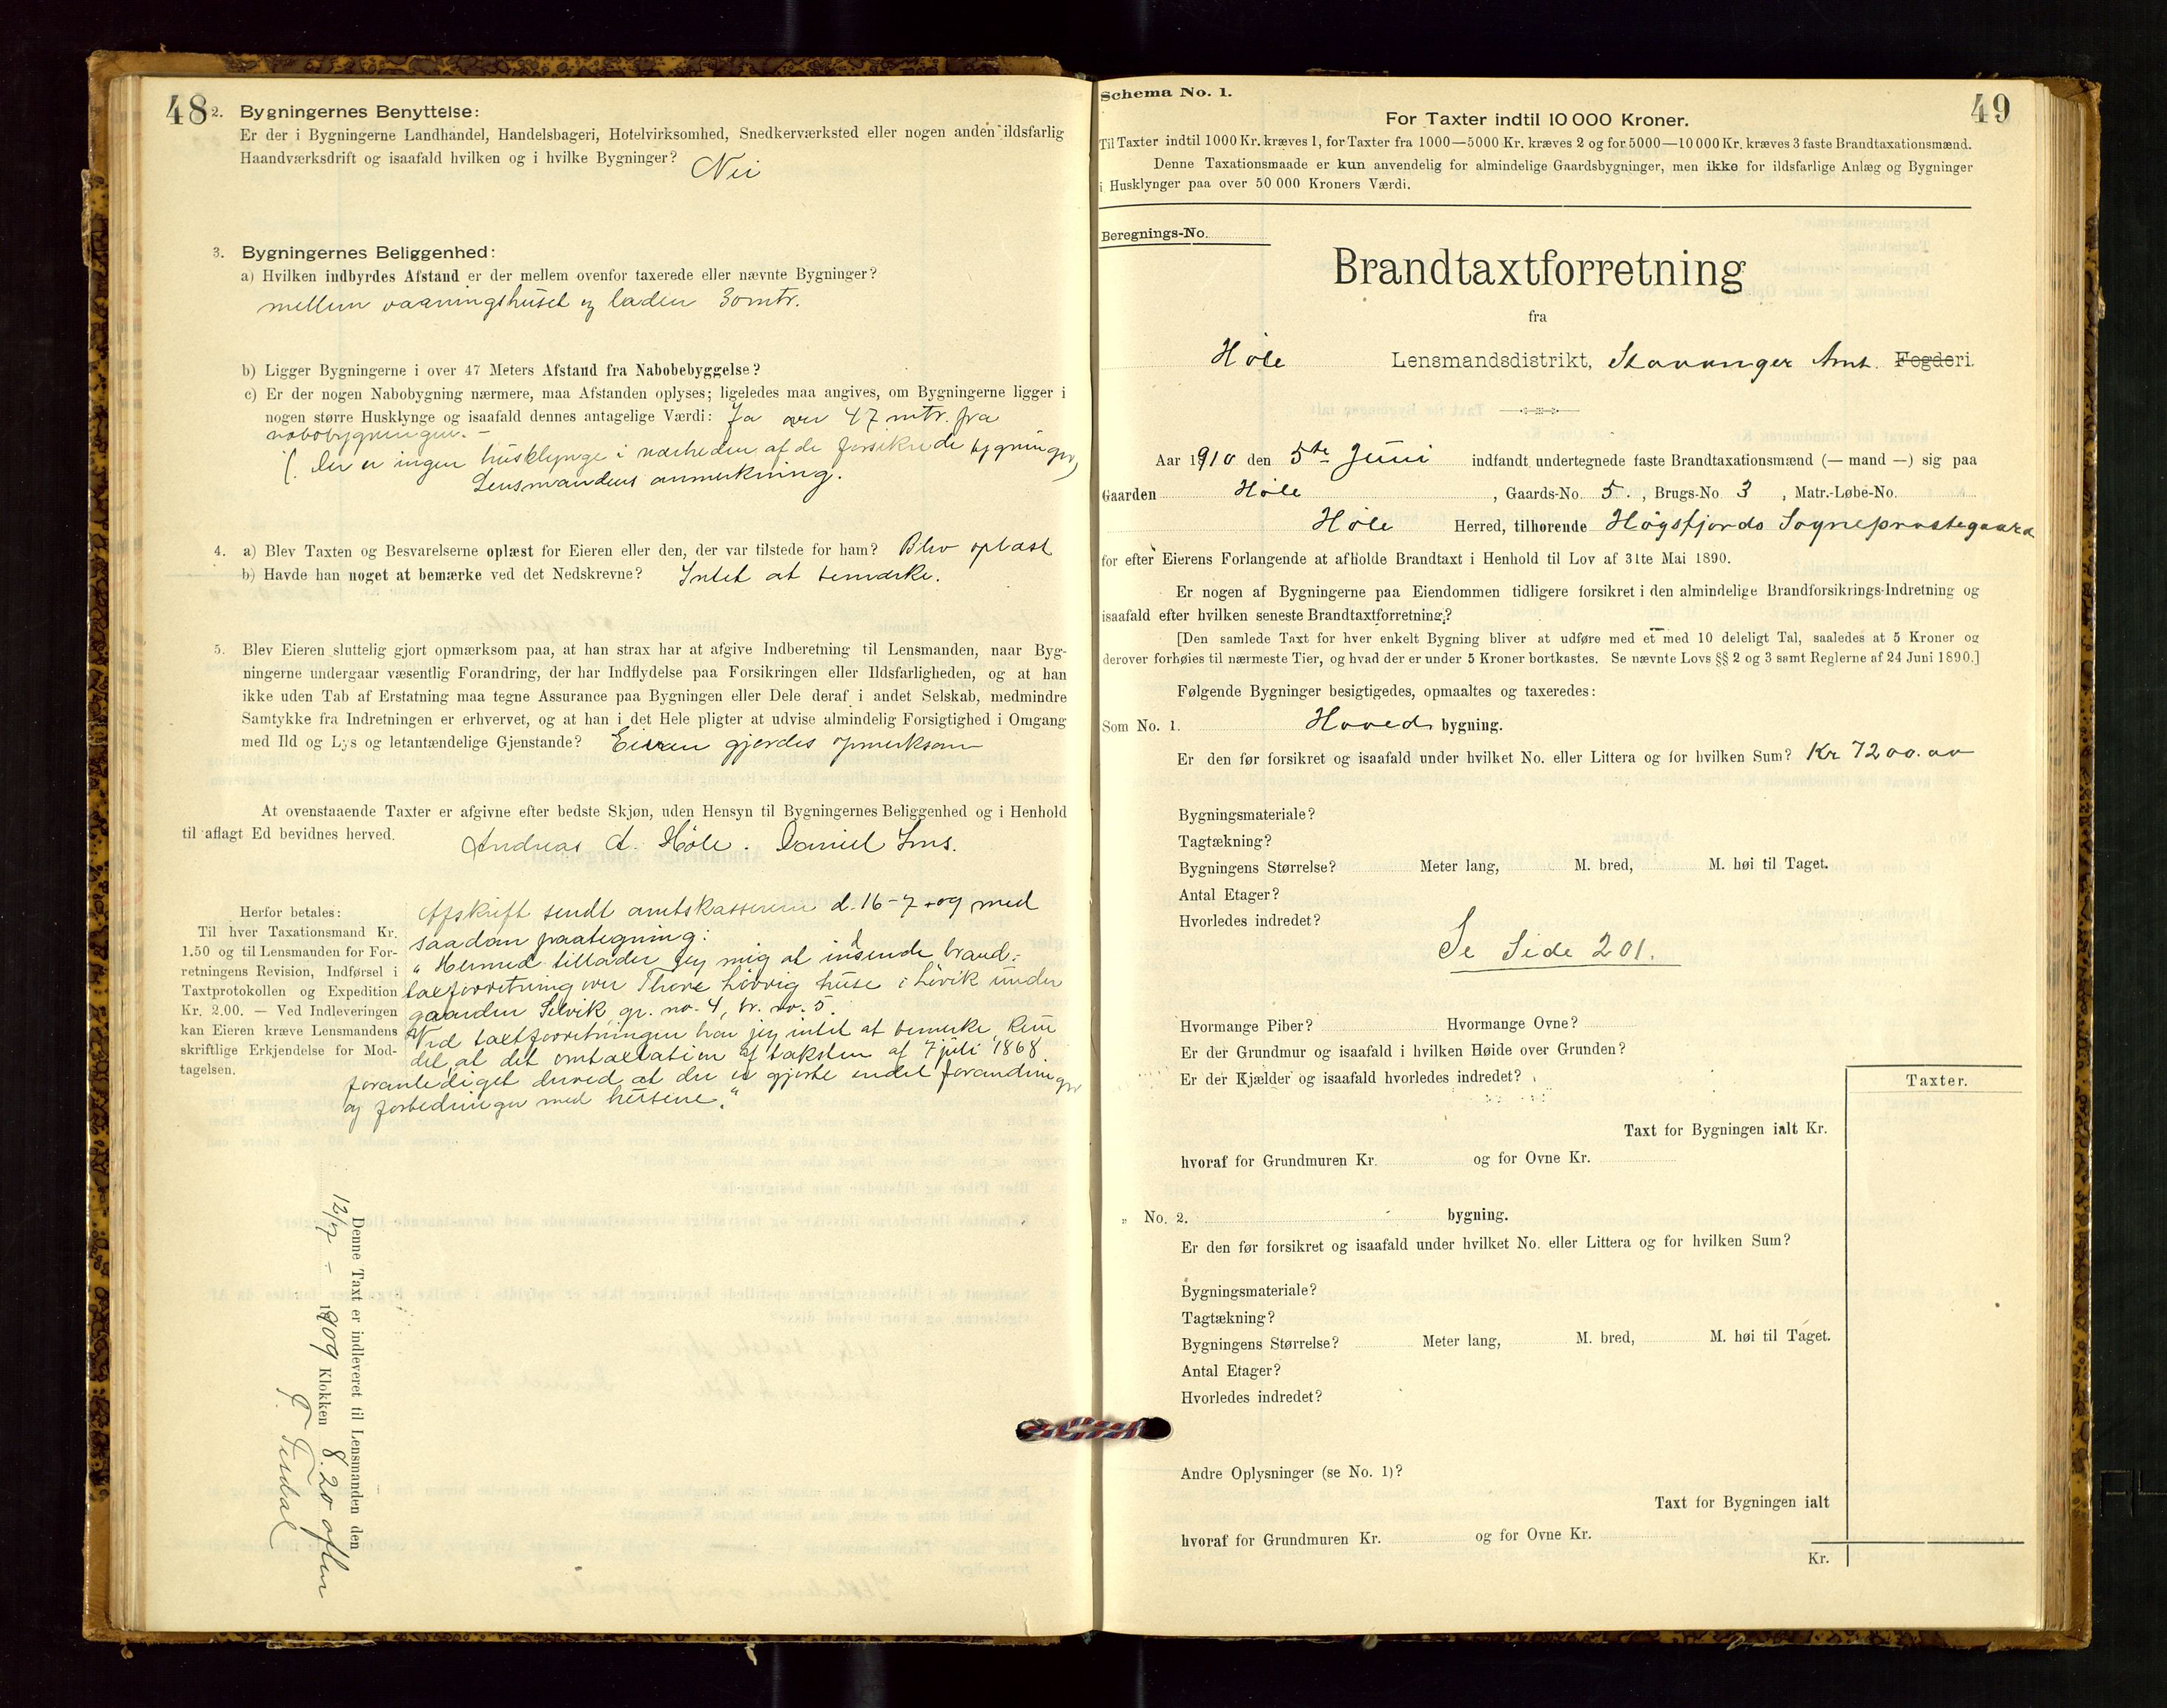 48
2. Bygningernes Benyttelse:
Er der i Bygningerne Landhandel, Handelsbageri, Hotelvirksomhed, Snedkerværksted eller nogen anden ildsfarlig
Haandværksdrift og isaafald hvilken og i hvilke Bygninger? Nei
3. Bygningernes Beliggenhed:
a) Hvilken indbyrdes Afstand er der mellem ovenfor taxerede eller nævnte Bygninger?
mellem vaaningshuset og laden 30 mtr.
b) Ligger Bygningerne i over 47 Meters Afstand fra Nabobebyggelse?
c) Er der nogen Nabobygning nærmere, maa Afstanden oplyses; ligeledes maa angives, om Bygningerne ligger i
nogen større Husklynge og isaafald dennes antagelige Værdi: Ja over 47 mtr. fra
nabobygningen. –
(. Der er ingen husklynge i nærheden af de forsikrede bygninger)
Lensmandens anmerkning.
4. a) Blev Taxten og Besvarelserne oplæst for Eieren eller den, der var tilstede for ham? Blev oplæst
b) Havde han noget at bemærke ved det Nedskrevne? Intet at bemærke.
5. Blev Eieren sluttelig gjort opmærksom paa, at han strax har at afgive Indberetning til Lensmanden, naar Byg-
ningerne undergaar væsentlig Forandring, der har Indflydelse paa Forsikringen eller Ildsfarligheden, og at han
ikke uden Tab af Erstatning maa tegne Assurance paa Bygningen eller Dele deraf i andet Selskab, medmindre
Samtykke fra Indretningen er erhvervet, og at han i det Hele pligter at udvise almindelig Forsigtighed i Omgang
med Ild og Lys og letantændelige Gjenstande? Eieren gjordes opmerksom
At ovenstaaende Taxter er afgivne efter bedste Skjøn, uden Hensyn til Bygningernes Beliggenhed og i Henhold
til aflagt Ed bevidnes herved. Andreas A. Høle. Daniel Ims.
Herfor betales:
Til hver Taxationsmand Kr.
1.50 og til Lensmanden for For-
retningens Revision, Indførsel i
Taxtprotokollen og Expedition
Kr. 2.00. — Ved Indleveringen
kan Eieren kræve Lensmandens
skriftlige Erkjendelse for Mod-
tagelsen.
Afskrift sendt amtskassereren d. 16-7-09 med
saadan paategning:
"Hermed tillader jeg mig at indsende brand-
taxtforretning over Thore Løvvig huse i Løvik under
gaarden Selvik, gr. no. 4, br. no. 5.
Ved taxtforretningen har jeg intet at bemerke. Rim
del, at det omtaxation af taksten af 7 juli 1868
foranlediget derved at der er gjorte endel forandringer
og forbedringer med husene."
Denne Taxt er indleveret til Lensmanden den
12/7 – 1909 Klokken 8.20 aften
T. Tisdal
49
Schema No. 1.
For Taxter indtil 10 000 Kroner.
Til Taxter indtil 1000 Kr. kræves 1, for Taxter fra 1000—5000 Kr. kræves 2 og for 5000—10 000 Kr. kræves 3 faste Brandtaxationsmænd.
Denne Taxationsmaade er kun anvendelig for almindelige Gaardsbygninger, men ikke for ildsfarlige Anlæg og Bygninger
i Husklynger paa over 50 000 Kroners Værdi.
Beregnings-No.
Brandtaxtforretning
fra
Høle Lensmandsdistrikt, Stavanger Amt. Fogderi.
Aar 1910 den 5te Juni indfandt undertegnede faste Brandtaxationsmænd (— mand —) sig paa
Gaarden Høle, Gaards-No. 5., Brugs-No 3, Matr.-Løbe-No.
Høle Herred, tilhørende Høgsfjords Sogneprestegaard
for efter Eierens Forlangende at afholde Brandtaxt i Henhold til Lov af 31te Mai 1890.
Er nogen af Bygningerne paa Eiendommen tidligere forsikret i den almindelige Brandforsikrings-Indretning og
isaafald efter hvilken seneste Brandtaxtforretning?
[Den samlede Taxt for hver enkelt Bygning bliver at udføre med et med 10 deleligt Tal, saaledes at 5 Kroner og
derover forhøies til nærmeste Tier, og hvad der er under 5 Kroner bortkastes. Se nævnte Lovs §§ 2 og 3 samt Reglerne af 24 Juni 1890.]
Følgende Bygninger besigtigedes, opmaaltes og taxeredes:
Som No. 1. Hoved bygning.
Er den før forsikret og isaafald under hvilket No. eller Littera og for hvilken Sum? Kr 7200.00
Bygningsmateriale?
Tagtækning?
Bygningens Størrelse? Meter lang, M. bred, M. høi til Taget.
Antal Etager?
Hvorledes indredet?
Se Side 201.
Hvormange Piber? Hvormange Ovne?
Er der Grundmur og isaafald i hvilken Høide over Grunden?
Er der Kjælder og isaafald hvorledes indredet?
Taxter.
Taxt for Bygningen ialt Kr.
hvoraf for Grundmuren Kr. og for Ovne Kr.
„ No. 2. bygning.
Er den før forsikret og isaafald under hvilket No. eller Littera og for hvilken Sum?
Bygningsmateriale?
Tagtækning?
Bygningens Størrelse? Meter lang, M. bred, M. høi til Taget.
Antal Etager?
Hvorledes indredet?
Andre Oplysninger (se No. 1)?
Taxt for Bygningen ialt
hvoraf for Grundmuren Kr. og for Ovne Kr.
Kr.